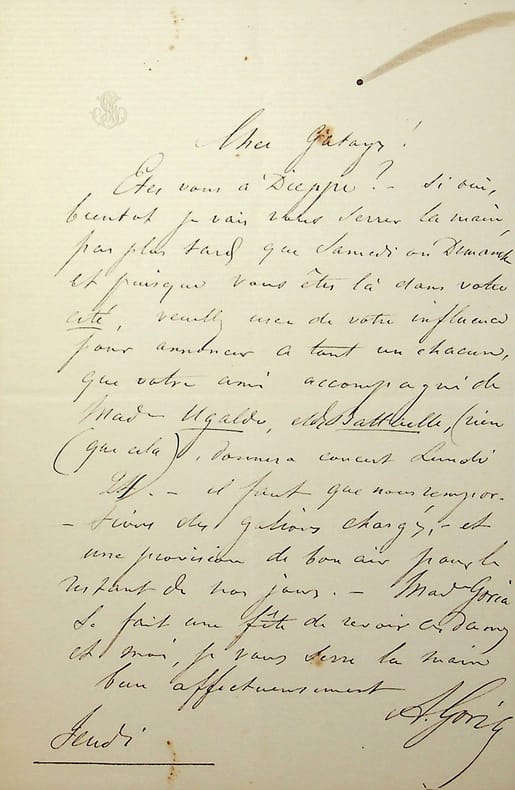 Cher Gatayes!
Etes vous à Dieppe? - Si oui,
bientot je vais vous serrer la main,
pas plus tard que Samedi ou Dimanche
et puisque vous êtes là dans votre
cité, veuillez user de votre influence
pour annoncer à tout un chacun,
que votre ami accompagné de
Made Ugalde, et de Battaille, (rien
(que cela), donnera concert Lundi
24. - il faut que nous rempor-
-tions des galions chargés, - et
une provision de bon air pour le
restant de nos jours. - Made Goria
se fait une fête de revoir ces Dames
et moi, je vous serre la main
bien affectueusement
A. Goria
Jeudi